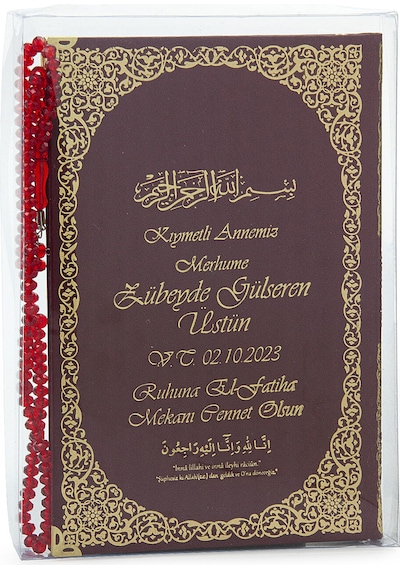 بسم الله الرحمن الرحيم
Kıymetli Annemiz
Merhume
Zübeyde Gülseren
Üstün
V.T. 02.10.2023
Ruhuna El-Fatiha
Mekanı Cennet Olsun
اِنَّا لِلّٰهِ وَاِنَّٓا اِلَيْهِ رَاجِعُونَ
"İnnâ lillahi ve innâ ileyhi râciûn."
"Şüphesiz ki Allah(c.c.) dan geldik ve O'na döneceğiz."